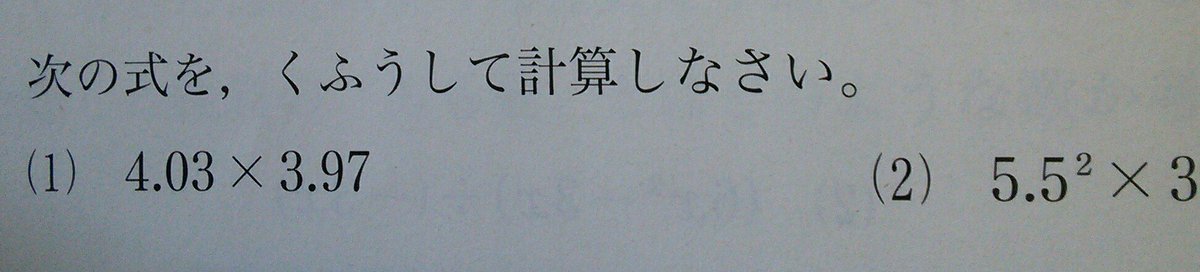 次の式を，くふうして計算しなさい。
(1) 4.03×3.97 (2) 5.5²×3